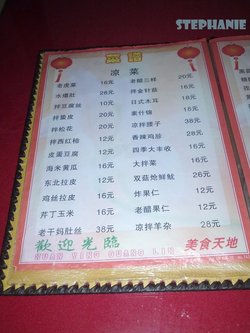 STEPHANIE
凉菜
老虎菜 16元
水爆肚 28元
拌豆腐丝 10元
拌蛰皮 20元
拌松花 20元
拌西红柿 12元
皮蛋豆腐 12元
海米黄瓜 16元
东北拉皮 12元
鸡丝拉皮 16元
芹丁玉米 16元
老干妈肚丝 38元
老醋三样 20元
拌金针菇 16元
日式木耳 16元
素什锦 16元
凉拌腰子 38元
香辣鸡胗 28元
四季大丰收 16元
大拌菜 16元
双菇炝鲜鱿 28元
炸果仁 12元
老醋果仁 12元
凉拌羊杂 28元
歡迎光臨
HUAN YING GUANG LIN
美食天地